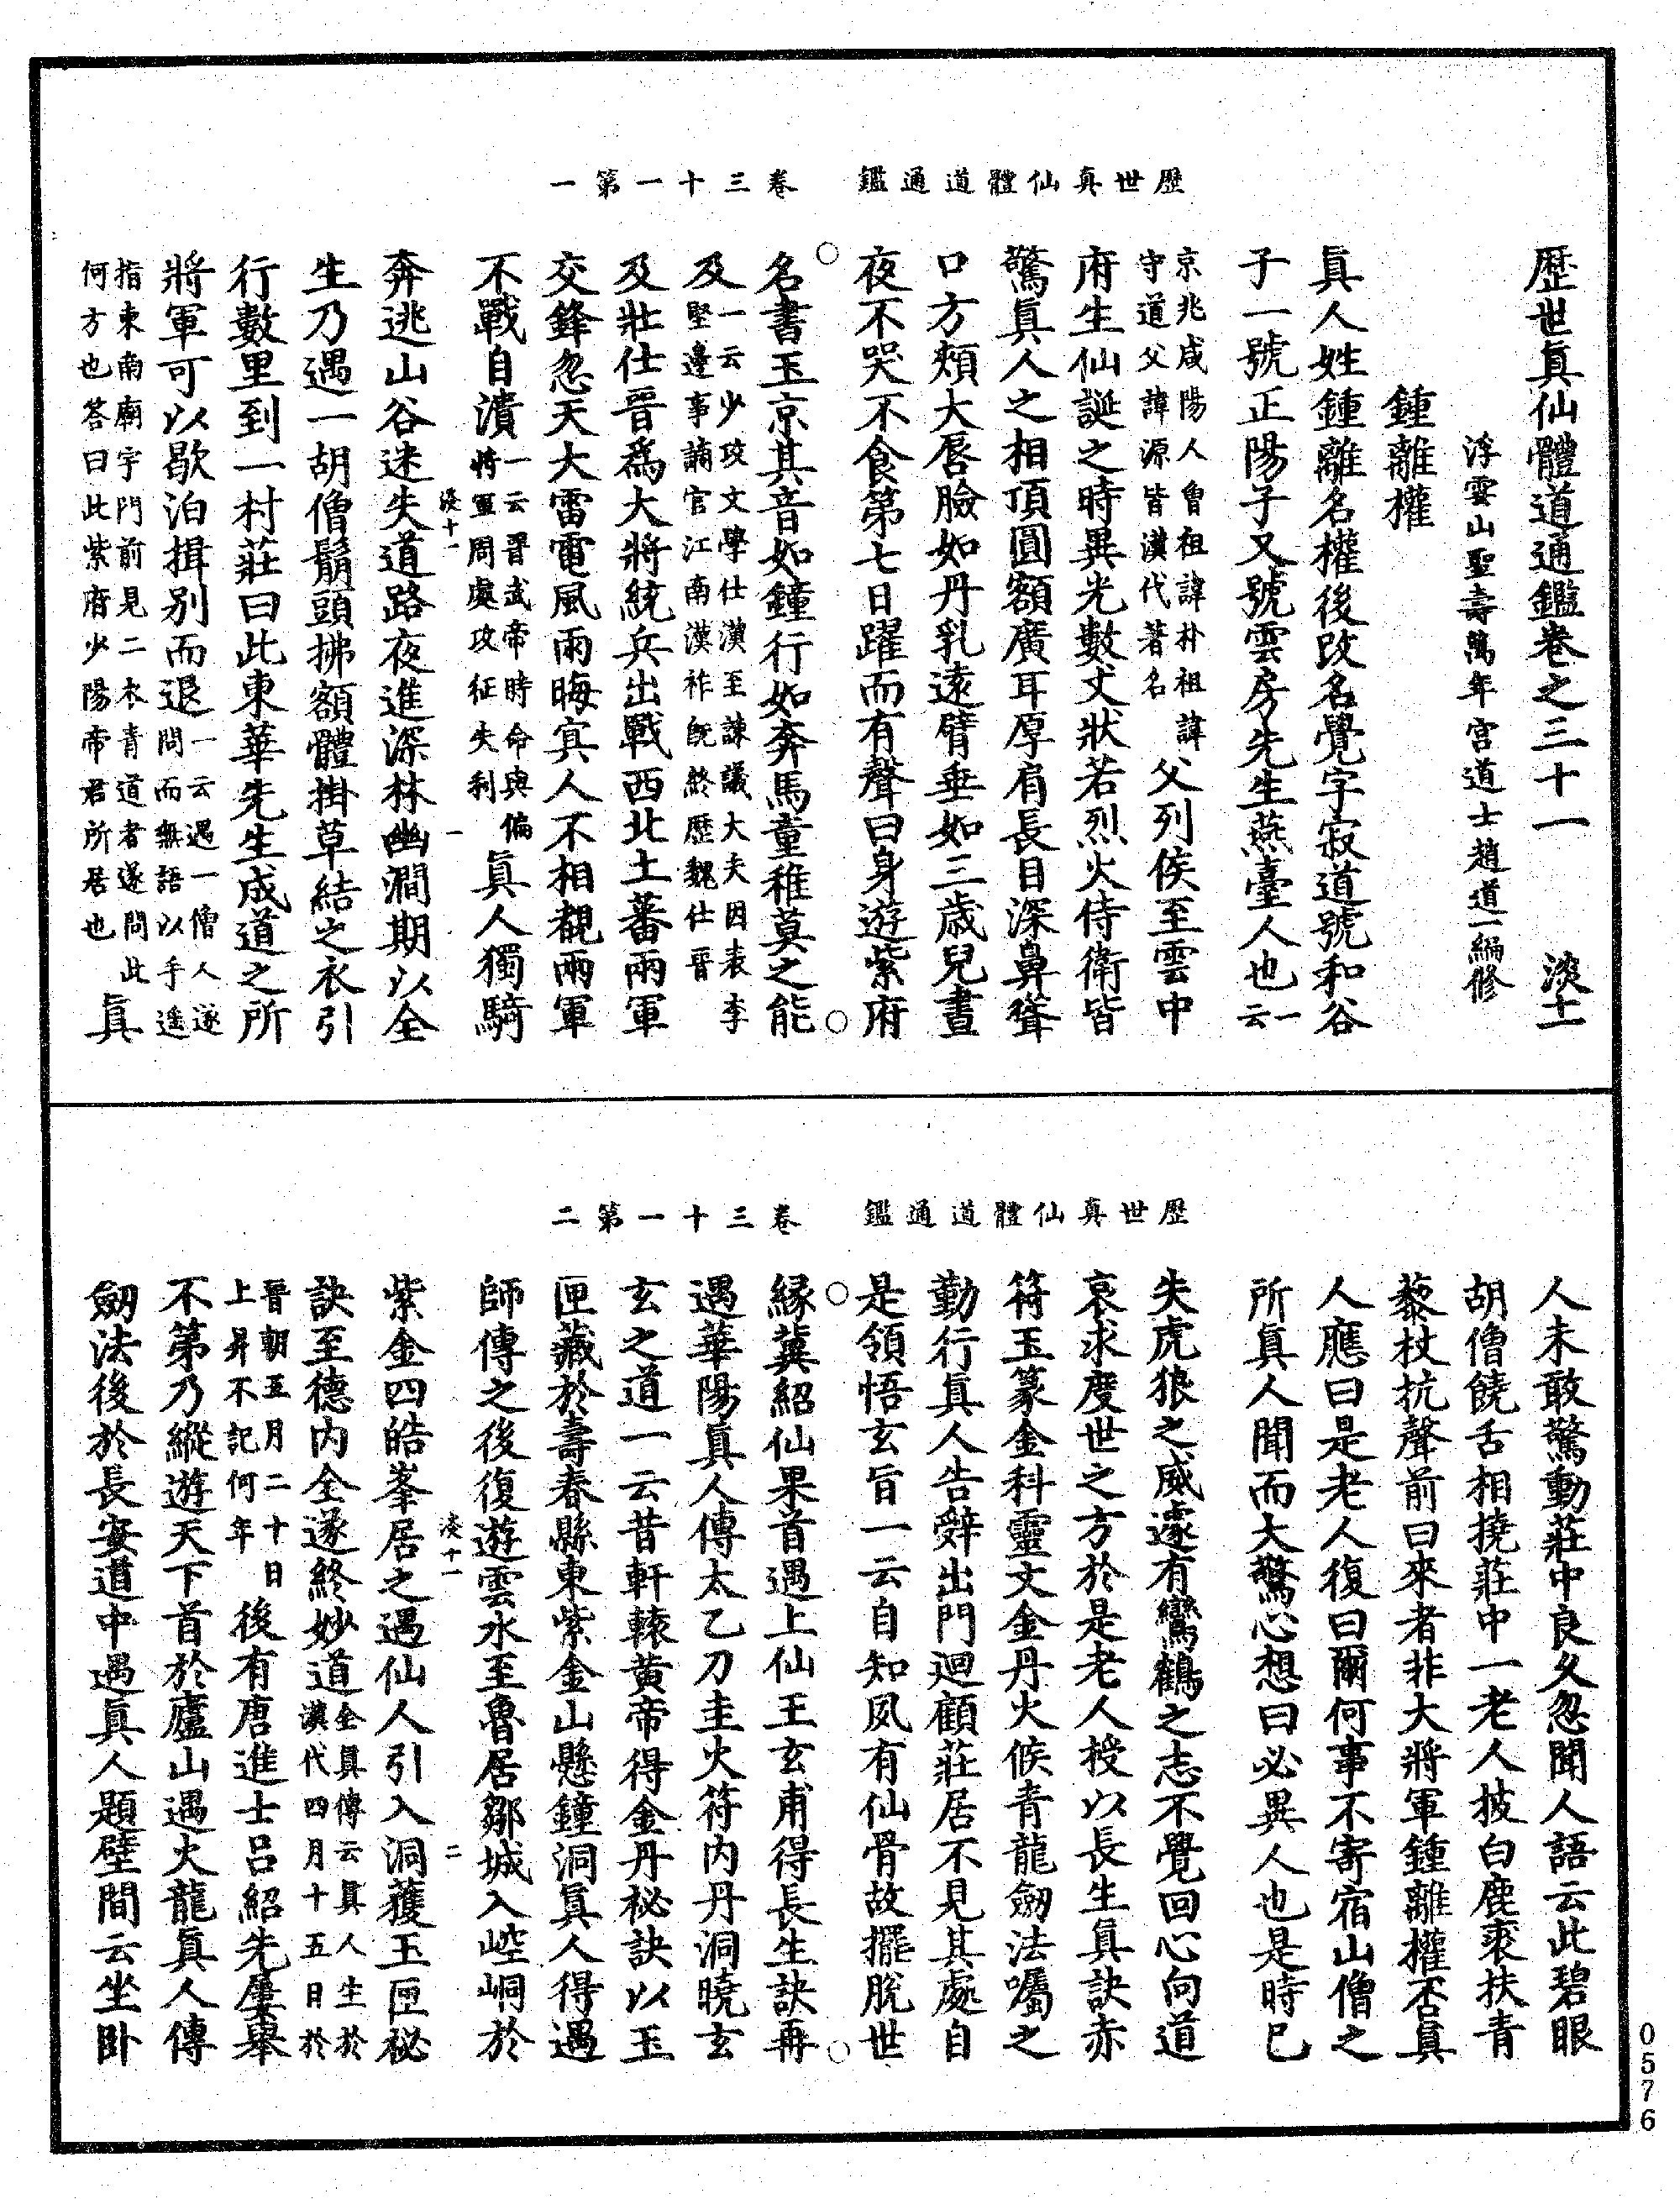 歷世真仙體道通鑑　卷三十一第一
歷世眞仙體道通鑑卷之三十一　淡十一
浮雲山聖壽萬年宮道士趙道一編修
鍾離權
眞人姓鍾離名權後改名覺字寂道號和谷
子一號正陽子又號雲房先生燕臺人也一云
京兆咸陽人曾祖諱朴祖諱守道父諱源皆漢代著名父列侯至雲中
府生仙誕之時異光數丈狀若烈火侍衛皆
驚眞人之相頂圓額廣耳厚肩長目深鼻聳
口方頰大唇臉如丹乳遠臂垂如三歲兒晝
夜不哭不食第七日躍而有聲曰身遊紫府
名書玉京其音如鐘行如奔馬童稚莫之能
及一云少攻文學仕漢至諫議大夫因表李堅邊事謫官江南漢祚旣終歷魏仕晉
及壯仕晉爲大將統兵出戰西北土蕃兩軍
交鋒忽天大雷電風雨晦冥人不相覩兩軍
不戰自潰一云晉武帝時命與偏將軍周處攻征失利眞人獨騎
淡十一　一
奔逃山谷迷失道路夜進深林幽澗期以全
生乃遇一胡僧鬅頭拂額體掛草結之衣引
行數里到一村莊曰此東華先生成道之所
將軍可以歇泊揖別而退一云遇一僧人遂問而無語以手遥
指東南廟宇門前見二木青道者遂問此何方也答曰此紫府少陽帝君所居也眞
歷世真仙體道通鑑　卷三十一第二
人未敢驚動莊中良久忽聞人語云此碧眼
胡僧饒舌相撓莊中一老人披白鹿裘扶青
藜杖抗聲前曰來者非大將軍鍾離權否眞
人應曰是老人復曰爾何事不寄宿山僧之
所眞人聞而大驚心想曰必異人也是時已
失虎狼之威遽有鸞鶴之志不覺回心向道
哀求度世之方於是老人授以長生眞訣赤
符玉篆金科靈文金丹火候青龍劒法囑之
勤行眞人告辭出門迴顧莊居不見其處自
是領悟玄旨一云自知夙有仙骨故擺脫世
緣冀紹仙果首遇上仙王玄甫得長生訣再
遇華陽眞人傳太乙刀圭火符內丹洞曉玄
玄之道一云昔軒轅黃帝得金丹祕訣以玉
匣藏於壽春縣東紫金山懸鐘洞眞人得遇
師傳之後復遊雲水至魯居鄒城入崆峒於
淡十一　二
紫金四皓峯居之遇仙人引入洞獲玉匣祕
訣至德內全遂終妙道全眞傳云眞人生於漢代四月十五日於
晉朝五月二十日上昇不記何年後有唐進士呂紹先屢舉
不第乃縱遊天下首於廬山遇火龍眞人傳
劒法後於長安道中遇眞人題壁間云坐卧
0576